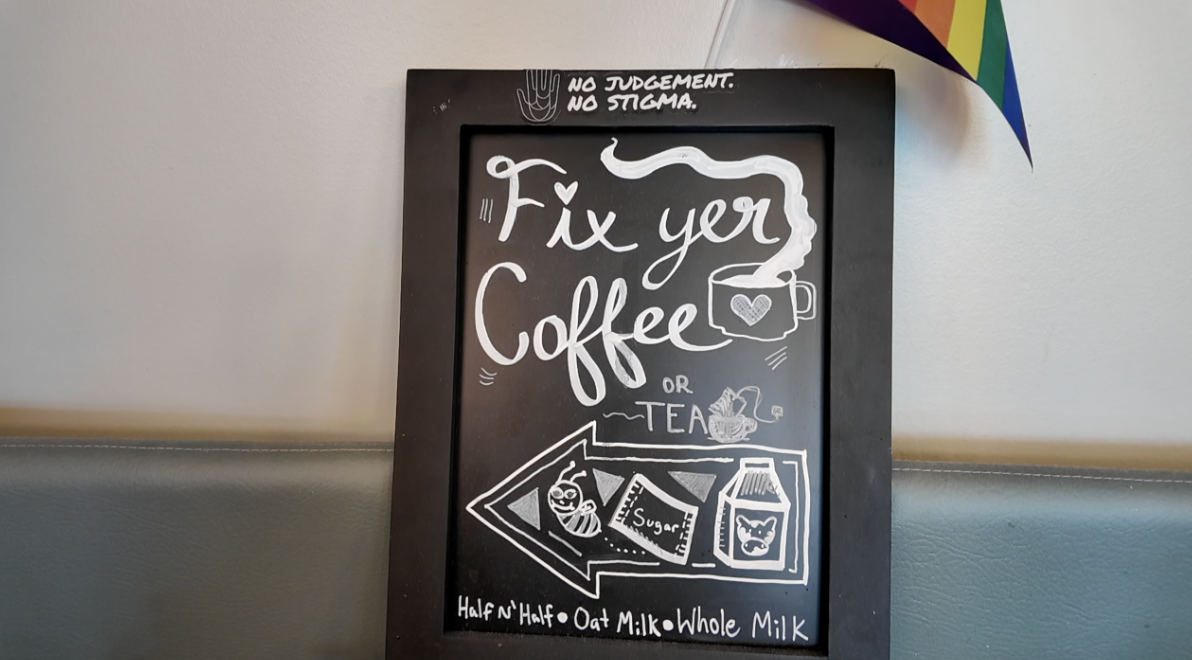 NO JUDGEMENT.
NO STIGMA.
Fix yer
Coffee
OR
TEA
Sugar
Half N' Half • Oat Milk • Whole Milk